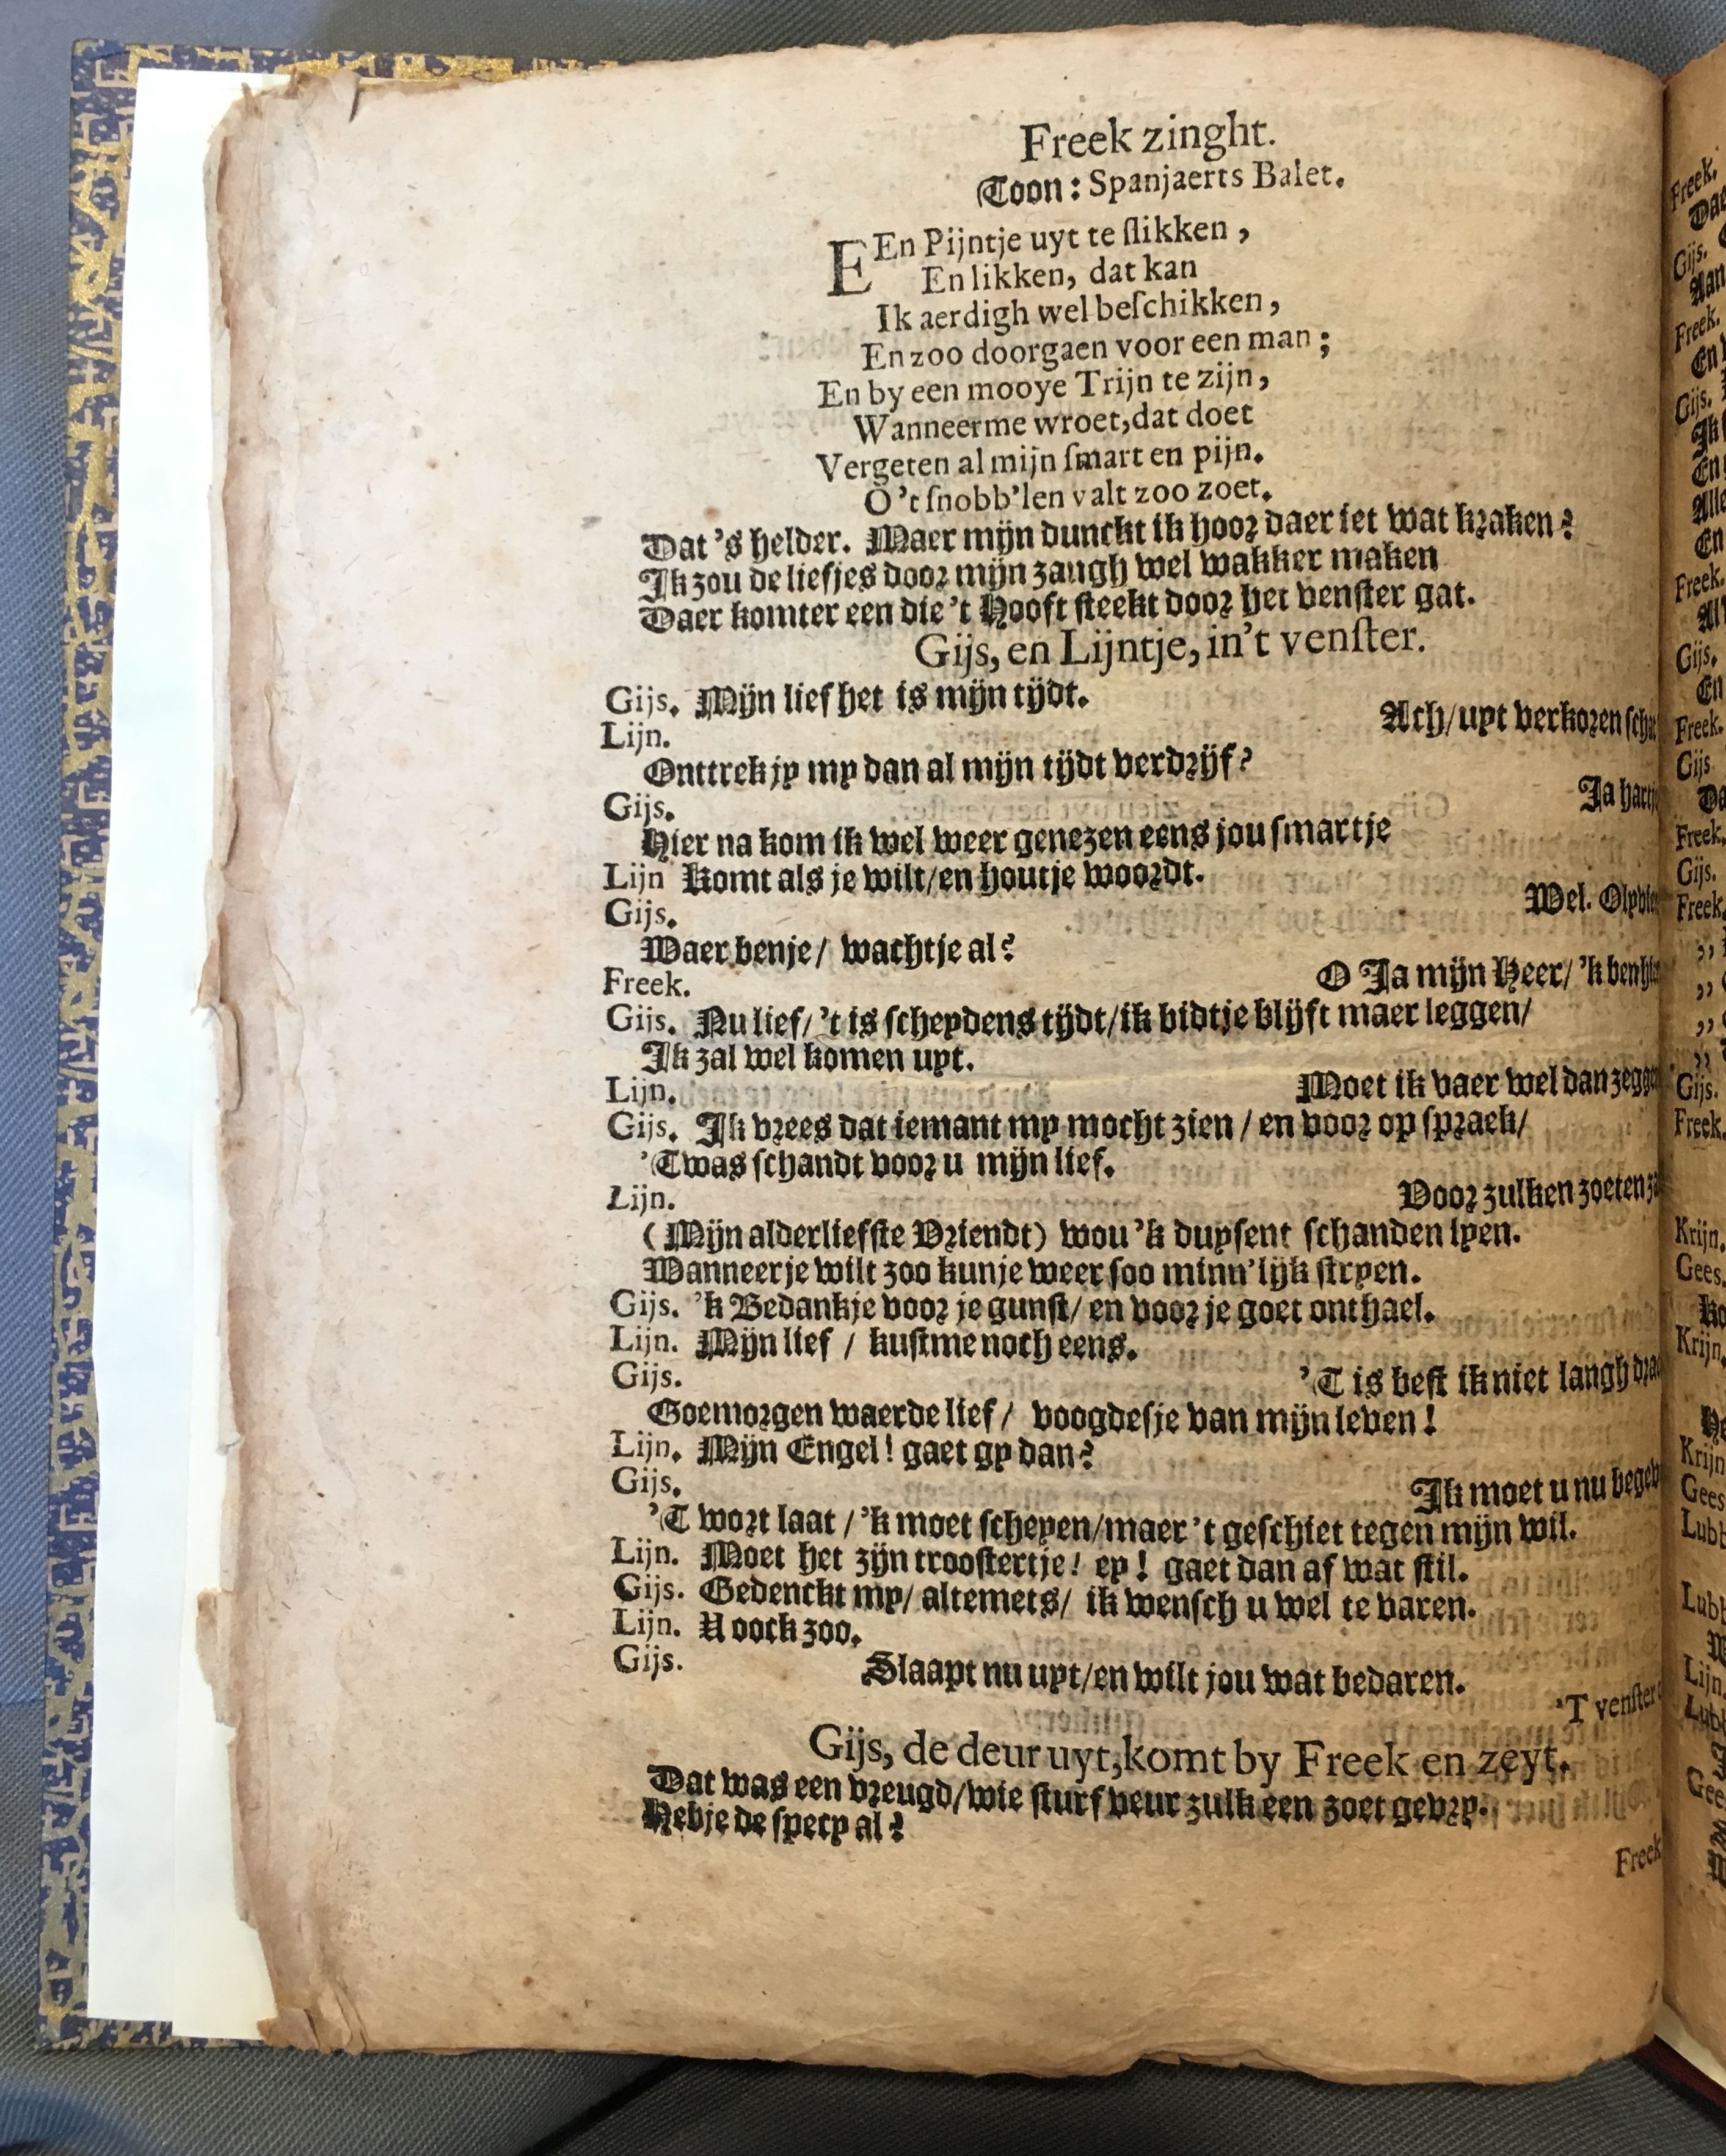 Freek zinght.
Toon: Spanjaerts Balet.
EEn Pijntje uyt te ſlikken,
En likken, dat kan
Ik aerdigh wel beſchikken,
En zoo doorgaen voor een man;
En by een mooye Trijn te zijn,
Wanneerme wroet, dat doet
Vergeten al mijn ſmart en pijn.
O 't ſnobb'len valt zoo zoet.
Dat 's helder. Maer mijn dunckt ik hoor daer iet wat kraken?
Ik zou de liefjes door mijn zaugh wel wakker maken
Daer komter een die 't Hooft ſteekt door het venſter gat.
Gijs, en Lijntje, in't venſter.
Gijs. Mijn lief het is mijn tijdt.
Lijn. Ach/ uyt verkoren
Onttrek jy my dan al mijn tijdt verdrijf?
Gijs. Ja
Hier na kom ik wel weer genezen eens jou ſmartje
Lijn Komt als je wilt/ en houtje woordt.
Gijs. Wel.
Waer benje/ wachtje al?
Freek. O Ja mijn Heer/ 'k ben
Gijs. Nu lief/ 't is ſcheydens tijdt/ ik bidtje blijft maer leggen/
Ik zal wel komen uyt.
Lijn. Moet ik vaer wel dan
Gijs. Ik vrees dat iemant my mocht zien / en voor op ſpraek/
'Twas ſchandt voor u mijn lief.
Lijn. Voor zulken zoeten
(Mijn alderliefſte Vriendt) wou 'k duyſent ſchanden lyen.
Wanneerje wilt zoo kunje weer ſoo minn'lijk ſtryen.
Gijs. 'k Bedankje voor je gunſt/ en voor je goet onthael.
Lijn. Mijn lief / kuſtme noch eens.
Gijs. 'T is beſt ik niet langh
Goemorgen waerde lief/ voogdesje van mijn leven!
Lijn. Mijn Engel! gaet gy dan?
Gijs. Ik moet u nu
'T wort laat / 'k moet ſcheyen/ maer 't geſchiet tegen mijn wil.
Lijn. Moet het zijn trooſtertje! ey! gaet dan af wat ſtil.
Gijs. Gedenckt my/ altemets/ ik wensch u wel te varen.
Lijn. U oock zoo.
Gijs. Slaapt nu uyt/ en wilt jou wat bedaren.
'T venſter
Gijs, de deur uyt, komt by Freek en zeyt.
Dat was een vreugd/ wie ſturf veur zulk een zoet gevry.
Hebje de ſpery al?
Freek